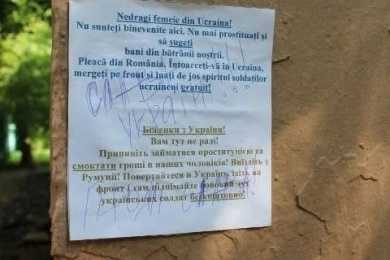 Nedragi femeie din Ucraina!
Nu sunteți binevenite aici. Nu mai prostituați și
să sugeti
bani din bătrânii noștrii.
Pleacă din România. Întoarceți-vă în Ucraina,
mergeți pe front și luați de jos spiritul soldaților
ucraineni gratuit!
СЛАВА
УКРАЇНІ!!!
Біженки з України!
Вам тут не раді!
Припиніть займатися проституцією та
смоктати гроші в наших чоловіків! Виїздіть з
Румунії! Повертайтеся в Україну, їдіть на
фронт і там піднімайте бойовий дух
українських солдат безкоштовно!